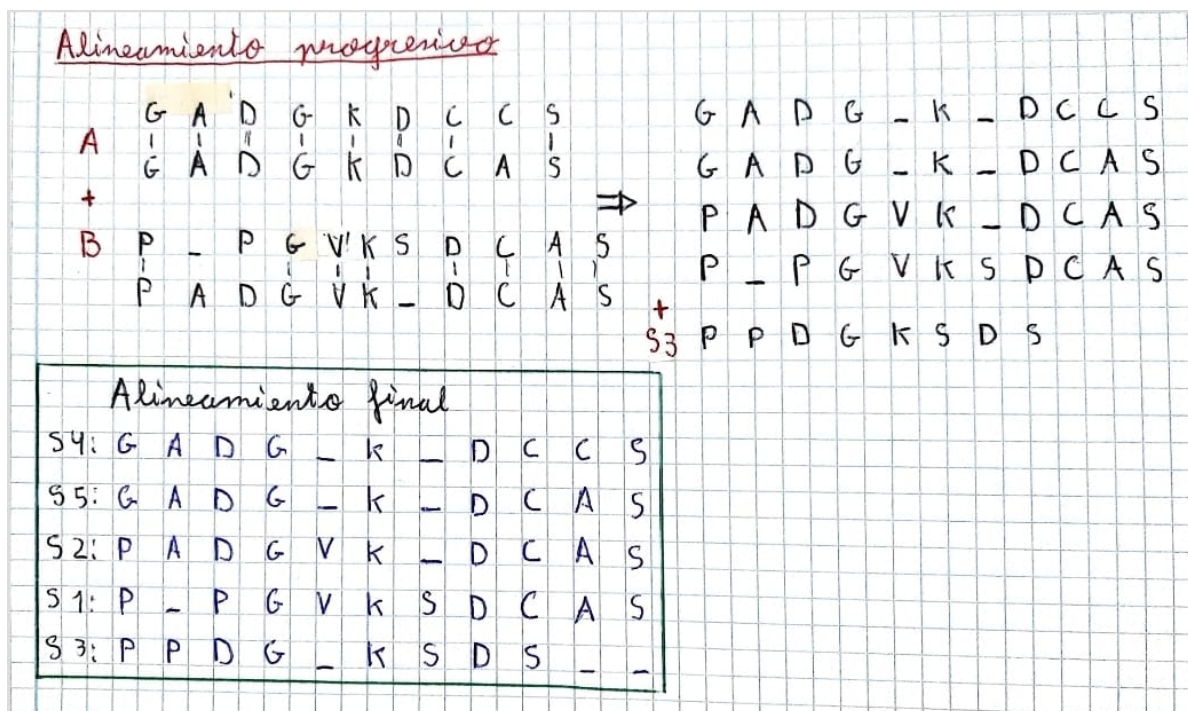 Alineamiento progresivo
G A D G K D C C S
A
G A D G K D C A S
+
B P _ P G V K S D C A S
P A D G V K _ D C A S
⇒
G A D G _ K _ D C C S
G A D G _ K _ D C A S
P A D G V K _ D C A S
P _ P G V K S D C A S
+
S3 P P D G K S D S
Alineamiento final
S4: G A D G _ K _ D C C S
S5: G A D G _ K _ D C A S
S2: P A D G V K _ D C A S
S1: P _ P G V K S D C A S
S3: P P D G _ K S D S _ _